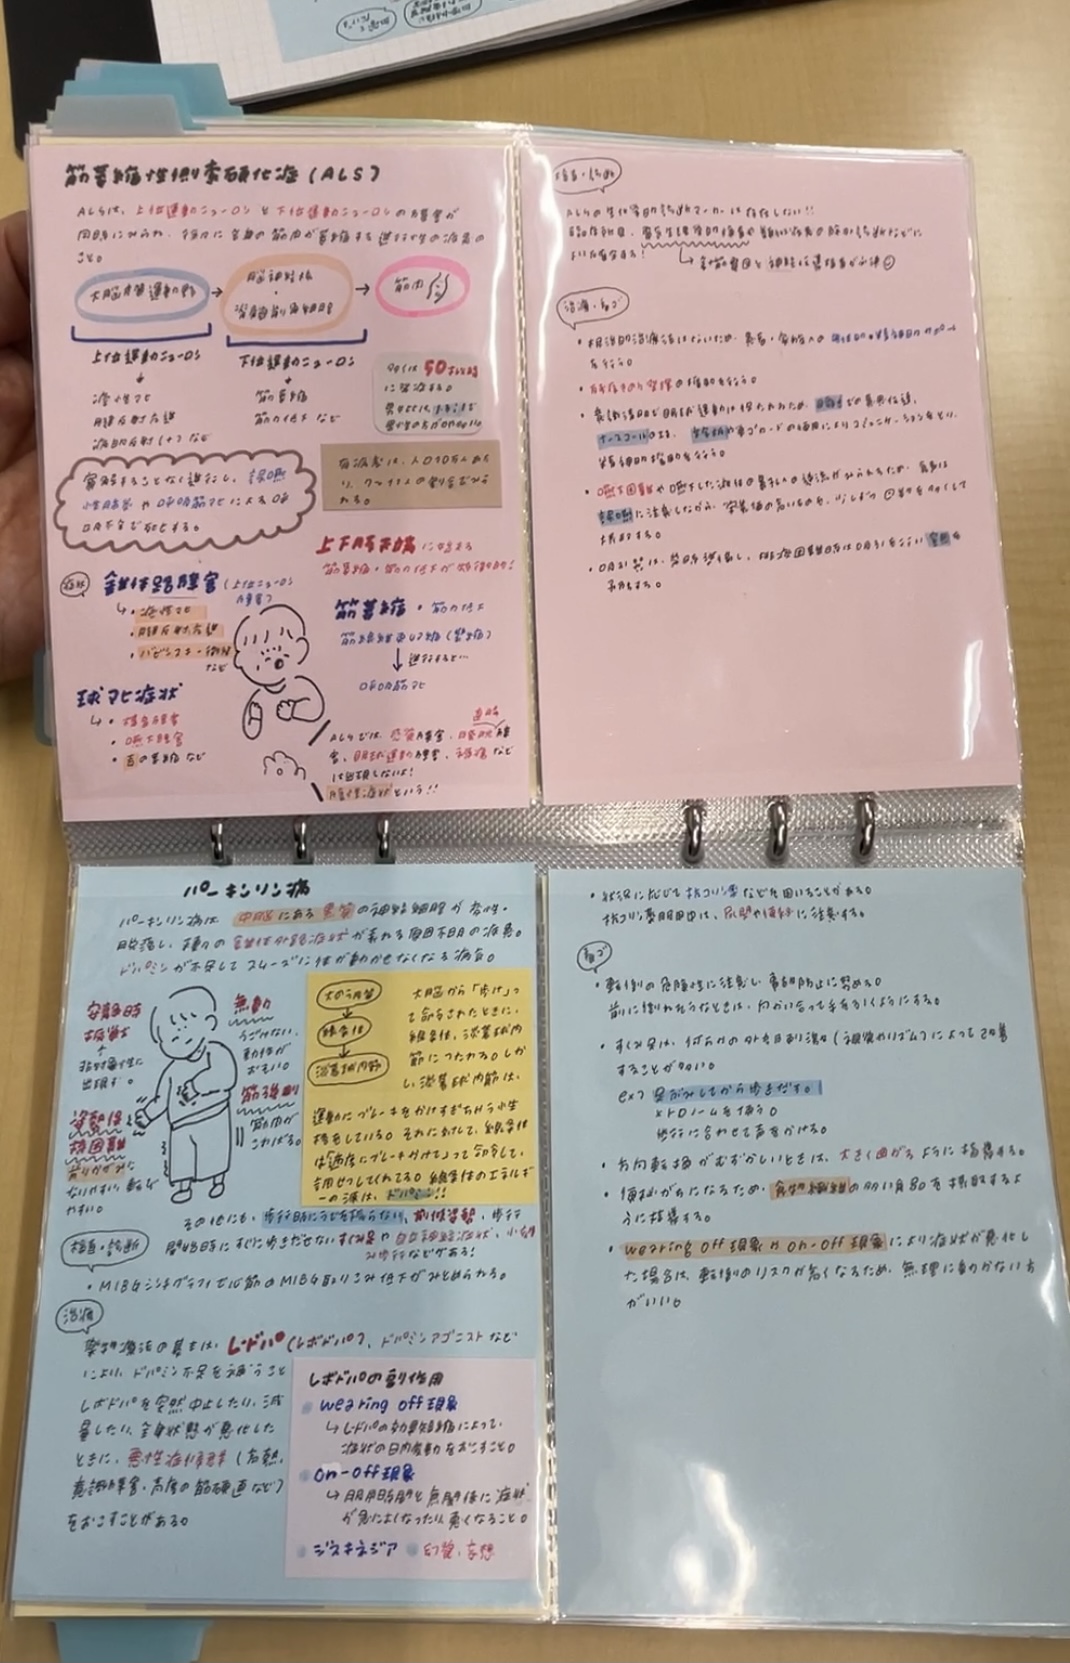 筋萎縮性側索硬化症(ALS)
ALSは、上位運動ニューロンと下位運動ニューロンの障害が
同時にみられ、徐々に全身の筋肉が萎縮する進行性の疾患の
こと。
大脳皮質運動野
脳神経核
・
脊髄前角細胞
筋肉
上位運動ニューロン
下位運動ニューロン
痙性マヒ
腱反射亢進
病的反射(+)など
筋萎縮
筋力低下 など
多くは50才以降
に発症する。
有病率は、人口10万人あた
り、
の割合でみら
れる。
寛解することなく進行し、誤嚥
性肺炎や呼吸筋マヒによる呼
吸不全で死亡する。
上下肢末端に始まる
筋萎縮・筋力低下が特徴的!
症状
錐体路障害(上位ニューロン
障害)
・痙性マヒ
・腱反射亢進
・バビンスキー徴候
など
筋萎縮・筋力低下
筋線維束攣縮
進行すると…
呼吸筋マヒ
球マヒ症状
・構音障害
・嚥下障害
・舌の萎縮 など
ALSでは、感覚障害、膀胱直腸障
害、眼球運動障害、褥瘡など
は出現しないよ!
陰性症状という!!
検査・診断
ALSの生化学的診断マーカーは存在しない!!
臨床所見、電気生理学的検査や類似疾患の除外診断などに
より診断する!
針筋電図と神経伝導検査が必須
治療・看ゴ
・根治的治療法はないため、患者・家族への身体的・精神的サポート
を行う。
・の援助を行う。
・末期まで眼球運動は保たれるため、での意思伝達、
ナースコールの工夫、文字盤やの使用によりコミュニケーションをとり、
精神的援助を行う。
・嚥下困難や嚥下した液体の鼻からの逆流がみられるため、食事は
誤嚥に注意しながら、栄養価の高いものを、少しずつ回数を多くして
摂取する。
・呼吸は、排痰困難時は吸引を行い窒息を
予防する。
パーキンソン病
パーキンソン病は、中脳にある黒質の神経細胞が変性・
脱落し、種々の錐体外路症状が表れる原因不明の疾患。
ドパミンが不足してスムーズに体が動かせなくなる病気。
安静時
振戦
非対称性に
出現する。
無動
うごけない、
動作が
おそい。
筋強剛
筋肉が
こわばる。
姿勢保
持困難
前かがみに
なりやすい、転び
やすい。
大のう皮質
線条体
淡蒼球内節
大脳から「歩け」っ
て命令されたときに、
線条体、淡蒼球内
節につたわる。しか
し、淡蒼球内節は、
運動にブレーキをかけすぎちゃう性
格をしている。それに対して、線条体
は「適度にブレーキかけて」って命令して、
調せつしてくれてる。線条体のエネルギ
ーの源は、ドパミン!!
その他にも、歩行時にうでを振らない、前傾姿勢、歩行
開始時にすぐに歩きだせないすくみ足や自律神経症状、小刻
み歩行などがある!
検査・診断
・MIBGシンチグラフィで心筋のMIBG取りこみ低下がみとめられる。
治療
薬物療法の基本は、L-ドパ(レボドパ)、ドパミンアゴニストなど
により、ドパミン不足を補うこと
レボドパを突然中止したり、減
量したり、全身状態が悪化した
ときに、悪性症候群(高熱、
意識障害・高度の筋硬直など)
をおこすことがある。
レボドパの副作用
wearing off現象
L-ドパの効果短縮によって、
症状の日内変動をおこすこと。
on-off現象
服用時間と無関係に症状
が急によくなったり、悪くなること。
ジスキネジア
幻覚・妄想
・状況に応じて抗コリン薬などを用いることがある。
抗コリン薬服用中は、尿閉や便秘に注意する。
看ゴ
・転倒の危険性に注意し、事故防止に努める。
前に倒れそうなときは、向かい合って手を引くようにする。
・すくみ足は、何らかの外的な刺激(視覚やリズム)によって改善
することが多い。
ex) 足ぶみしてから歩きだす。
メトロノームを使う。
歩行に合わせて声をかける。
・方向転換がむずかしいときは、大きく曲がるように指導する。
・便秘がちになるため、食物繊維の多い食品を摂取するよ
うに指導する。
・wearing off現象やon-off現象により症状が悪化し
た場合は、転倒のリスクが高くなるため、無理に動かない方
がいい。